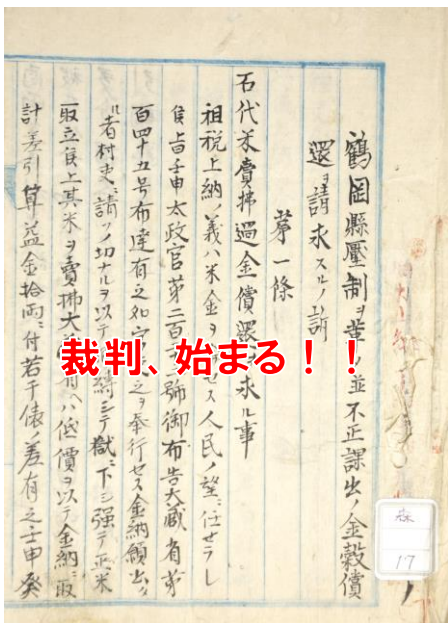 鶴岡縣壓制ヲ苦シ並不正課出ノ金穀償
還ヲ請求スルノ訴
第一條
石代米賣拂過金償還ヲ求ル事
祖税上納ノ義ハ米金ヲ セス人民ノ望ニ任セラレ
候旨壬申太政官第二百 號御布告大藏省第
百四十五号布達有之 之ヲ奉行セス金納願出
ル者村吏ニ請フノ切ナルヲ以テ 縛シテ獄ニ下シ強テ正米
取立候上其米ヲ賣拂大 ハ低價ヲ以テ金納ニ取
計差引算益金拾兩ニ付若干俵ノ差有之壬申癸
裁判、始まる！！
17